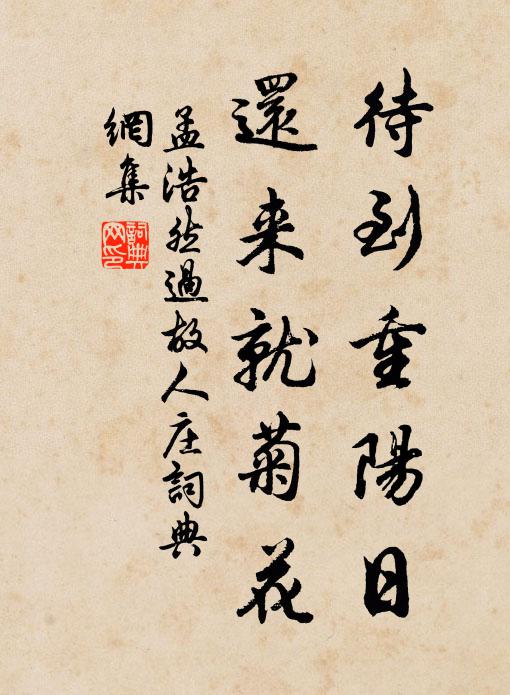 待到重陽日
還来就菊花
孟浩然過故人庄詞典
網集
詞典
网印